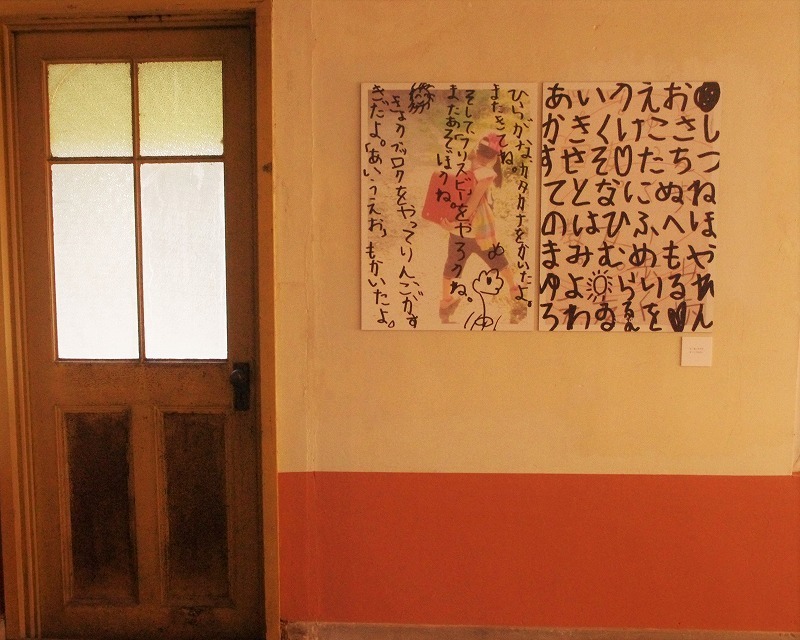 ひらがな、カタカナをかいたよ。
またきてね。
そして、「フリスビー」をやろうね。
またあそぼうね。
きょうブロックをやってりんごがす
きだよ。「あいうえお」もかいたよ。
あいうえお
かきくけこさし
すせそたちつ
てとなにぬね
のはひふへほ
まみむめもや
ゆよらりるれ
ろわゐゑをん